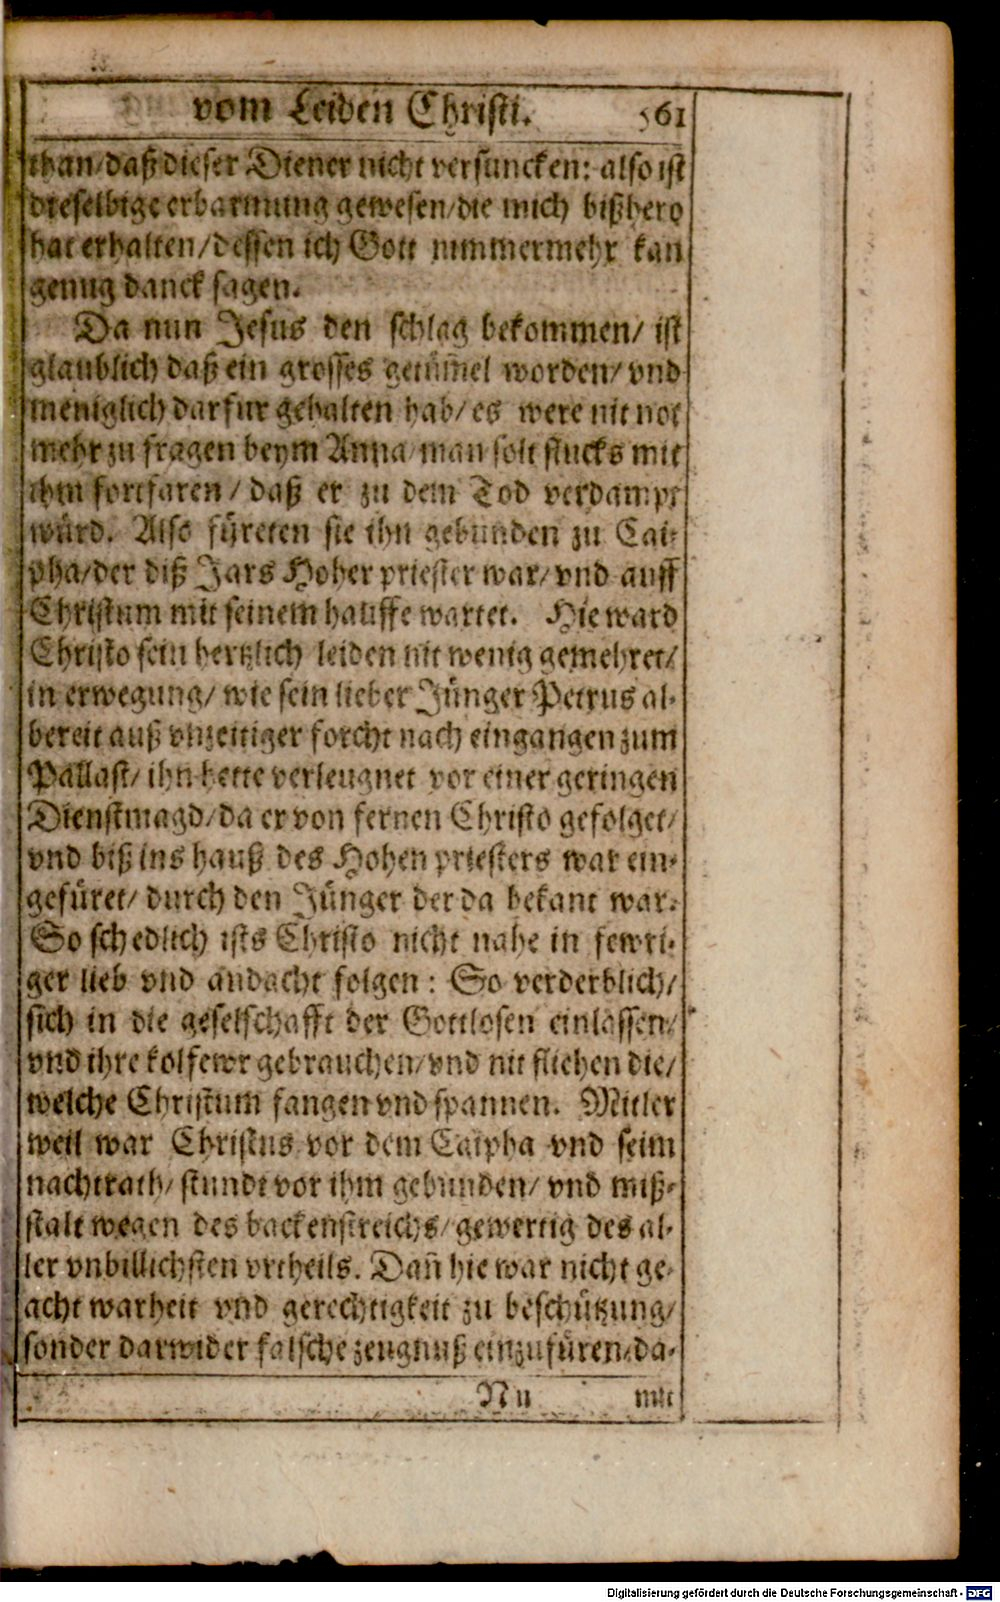 vom Leiden Christi. 561
than/daß dieser Diener nicht versuncken: also ist
dieselbige erbarmung gewesen/die mich bißhero
hat erhalten/dessen ich Gott nimmermehr kan
genug danck sagen.
Da nun Jesus den schlag bekommen/ ist
glaublich daß ein grosses getüm̃el worden/ vnd
meniglich darfur gehalten hab/ es were nit not
mehr zu fragen beym Anna/man solt stucks mit
ihm fortfaren / daß er zu dem Tod verdampt
würd. Also füreten sie ihn gebunden zu Cai-
pha/der diß Jars Hoher priester war/ vnd auff
Christum mit seinem hauffe wartet. Hie ward
Christo sein hertzlich leiden nit wenig gemehret/
in erwegung/ wie sein lieber Jünger Petrus al-
bereit auß vnzeitiger forcht nach eingangen zum
Pallast/ ihn hette verleugnet vor einer geringen
Dienstmagd/da er von fernen Christo gefolget/
vnd biß ins hauß des Hohen priesters war ein-
gefüret/ durch den Jünger der da bekant war.
So schedlich ists Christo nicht nahe in fewri-
ger lieb vnd andacht folgen: So verderblich/
sich in die geselschafft der Gottlosen einlassen/
vnd ihre kolfewr gebrauchen/vnd nit fliehen die/
welche Christum fangen vnd spannen. Mitler
weil war Christus vor dem Caipha vnd seim
nachtrath/ stundt vor ihm gebunden/ vnd miß-
stalt wegen des backenstreichs/gewertig des al-
ler vnbillichsten vrtheils. Dañ hie war nicht ge-
acht warheit vnd gerechtigkeit zu beschützung/
sonder darwider falsche zeugnuß einzufüren/da-
Nn mit
Digitalisierung gefördert durch die Deutsche Forschungsgemeinschaft - DFG